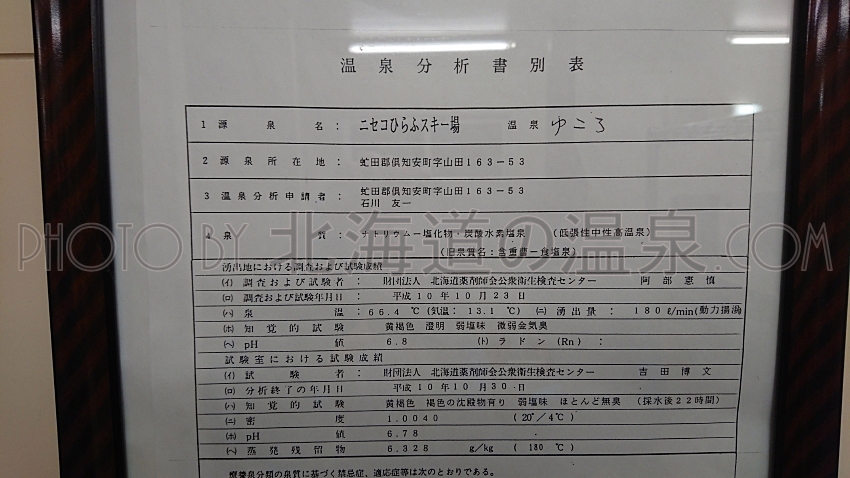 温泉分析書別表
1 源泉名： ニセコひらふスキー場 温泉 ゆころ
2 源泉所在地： 虻田郡倶知安町字山田163-53
3 温泉分析申請者： 虻田郡倶知安町字山田163-53
石川 友一
4 泉質： ナトリウム-塩化物・炭酸水素塩泉 (低張性中性高温泉)
(旧泉質名：含重曹-食塩泉)
湧出地における調査および試験成績
(イ) 調査および試験者： 財団法人 北海道薬剤師会公衆衛生検査センター 阿部憲慎
(ロ) 調査および試験年月日： 平成10年10月23日
(ハ) 泉温： 66.4 ℃ (気温： 13.1 ℃) (ニ) 湧出量： 180ℓ/min(動力揚湯)
(ホ) 知覚的試験 黄褐色 澄明 弱塩味 微弱金気臭
(ヘ) pH値 6.8 (ト) ラドン (Rn) ：
試験室における試験成績
(イ) 試験者： 財団法人 北海道薬剤師会公衆衛生検査センター 吉田博文
(ロ) 分析終了の年月日 平成10年10月30日
(ハ) 知覚的試験 黄褐色 褐色の沈殿物有り 弱塩味 ほとんど無臭 (採水後22時間)
(ニ) 密度 1.0040 (20°/4℃)
(ホ) pH値 6.78
(ヘ) 蒸発残留物 6.328 g/kg (180 ℃)
療養泉分類の泉質に基づく禁忌症、適応症等は次のとおりである。
PHOTO BY 北海道の温泉.COM